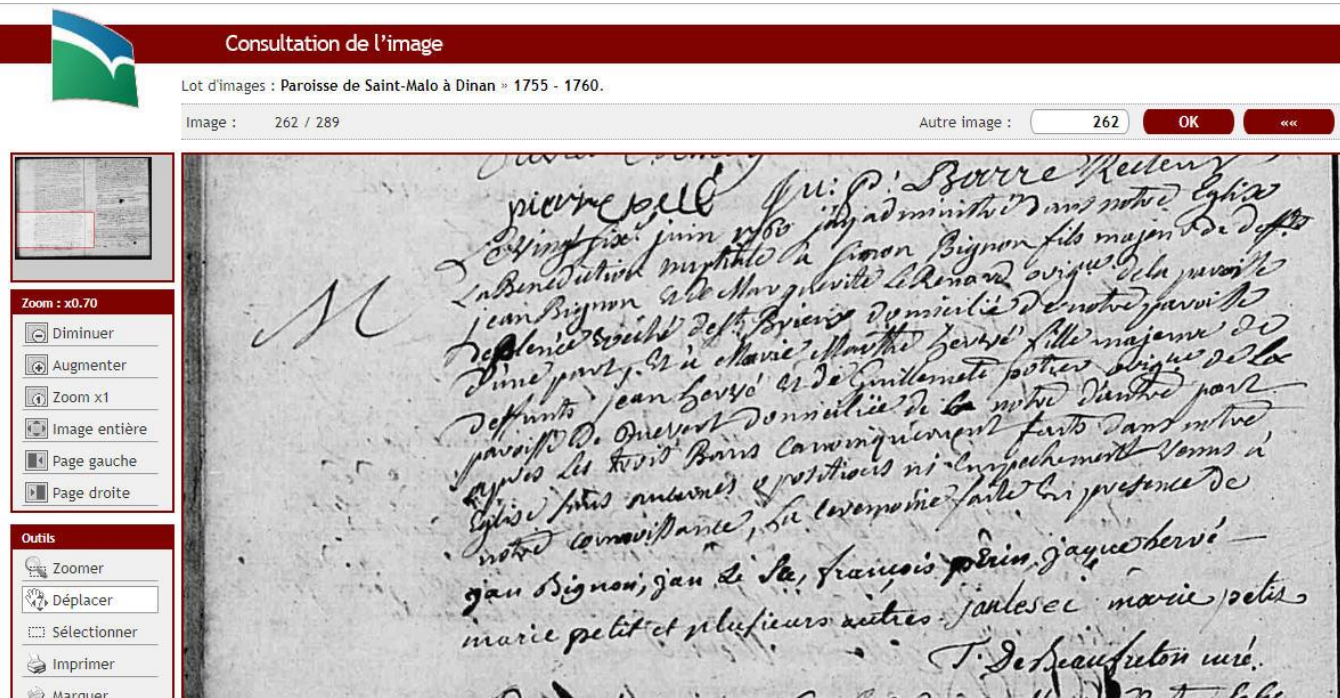 Consultation de l'image
Lot d'images : Paroisse de Saint-Malo à Dinan » 1755 - 1760.
Image : 262 / 289
Autre image : 262 OK ««
Zoom : x0.70
Diminuer
Augmenter
Zoom x1
Image entière
Page gauche
Page droite
Outils
Zoomer
Déplacer
Sélectionner
Imprimer
Marquer
pierre pelé Barre Recteur
Le vingt six juin 1760 jay administré dans notre Eglise
La Benediction nuptiale a Simon Bignon fils majeur de deff.ts
jean Bignon et de Marguerite LeRenard orig.re de la paroisse
de plenée Eveché de St Brieuc domicilié de notre paroisse
d'une part, Et à Marie Marthe hervé fille majeure de
deffunts jean hervé et de Guillemete potier orig.re de la
paroisse de Quevert domiciliée de la notre d'autre part
apres les trois Bans canoniquement faits dans notre
Eglise sans aucunes opositions ni Empechement venus à
notre connoissance, la ceremonie faite En presence de
jan Bignon, jan Le Sec, francois perin, jaque hervé
marie petit et plusieurs autres janlesec marie petit
T. DeBeaufreton curé.